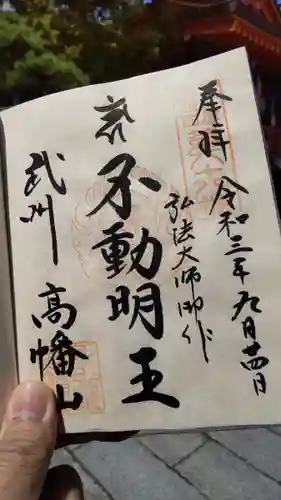 奉拝
令和三年九月十四日
弘法大師御作
不動明王
武州
高幡山